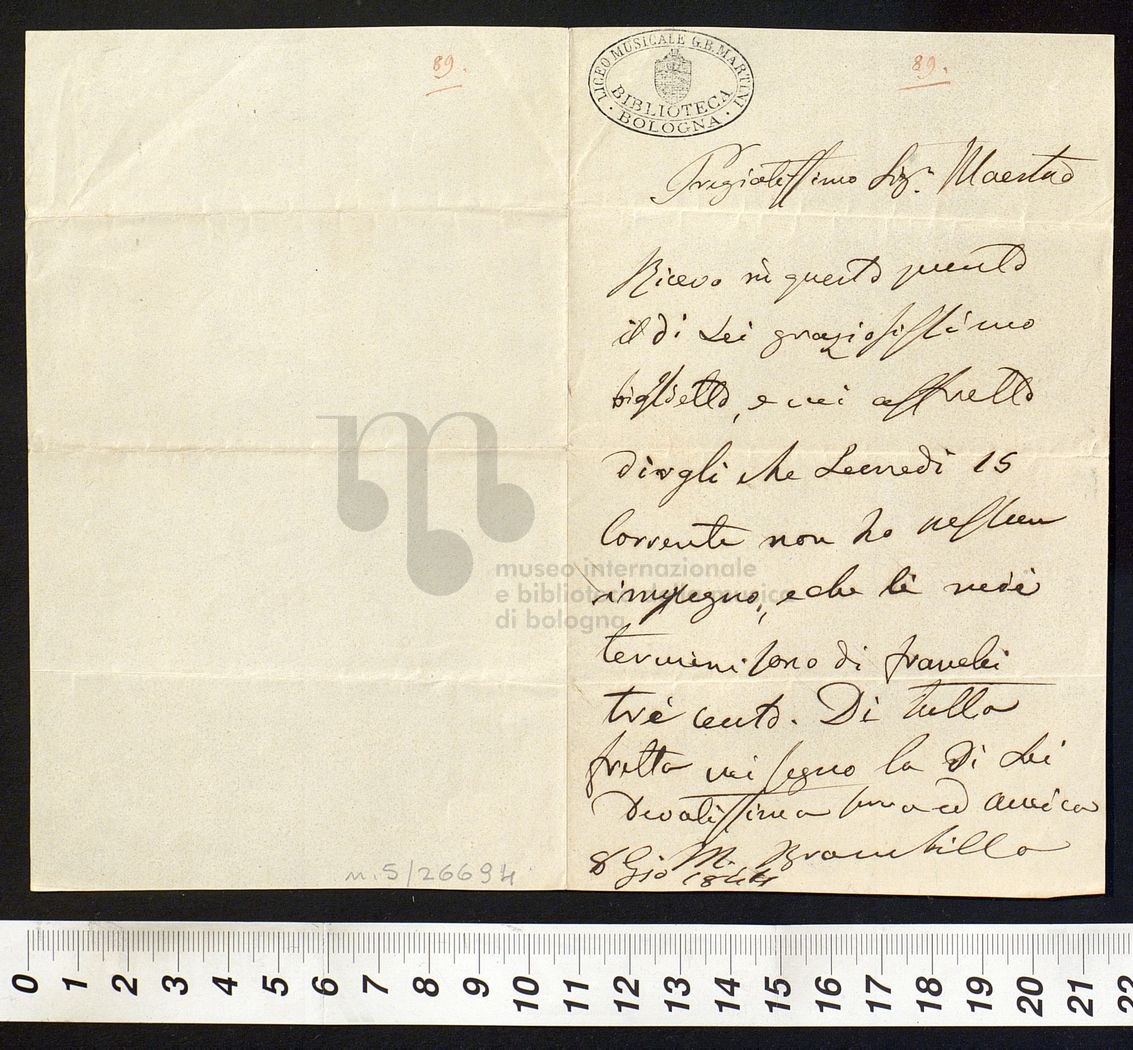 89.
89.
LICEO MUSICALE G.B. MARTINI
BIBLIOTECA
BOLOGNA
Pregiatissimo Sigr. Maestro
Ricevo in questo punto
il di Lei graziosissimo
biglietto, e mi affretto
dirgli che Lunedi 15
Corrente non ho nessun
impegno, e che li miei
termini sono di franchi
tre cento. Di tutta
fretta mi segno la Di Lei
Devotissima serva ed amica
M. Brambilla
8 Gio 1844
n. 5/26694
museo internazionale
e biblioteca della musica
di bologna
0 1 2 3 4 5 6 7 8 9 10 11 12 13 14 15 16 17 18 19 20 21 22